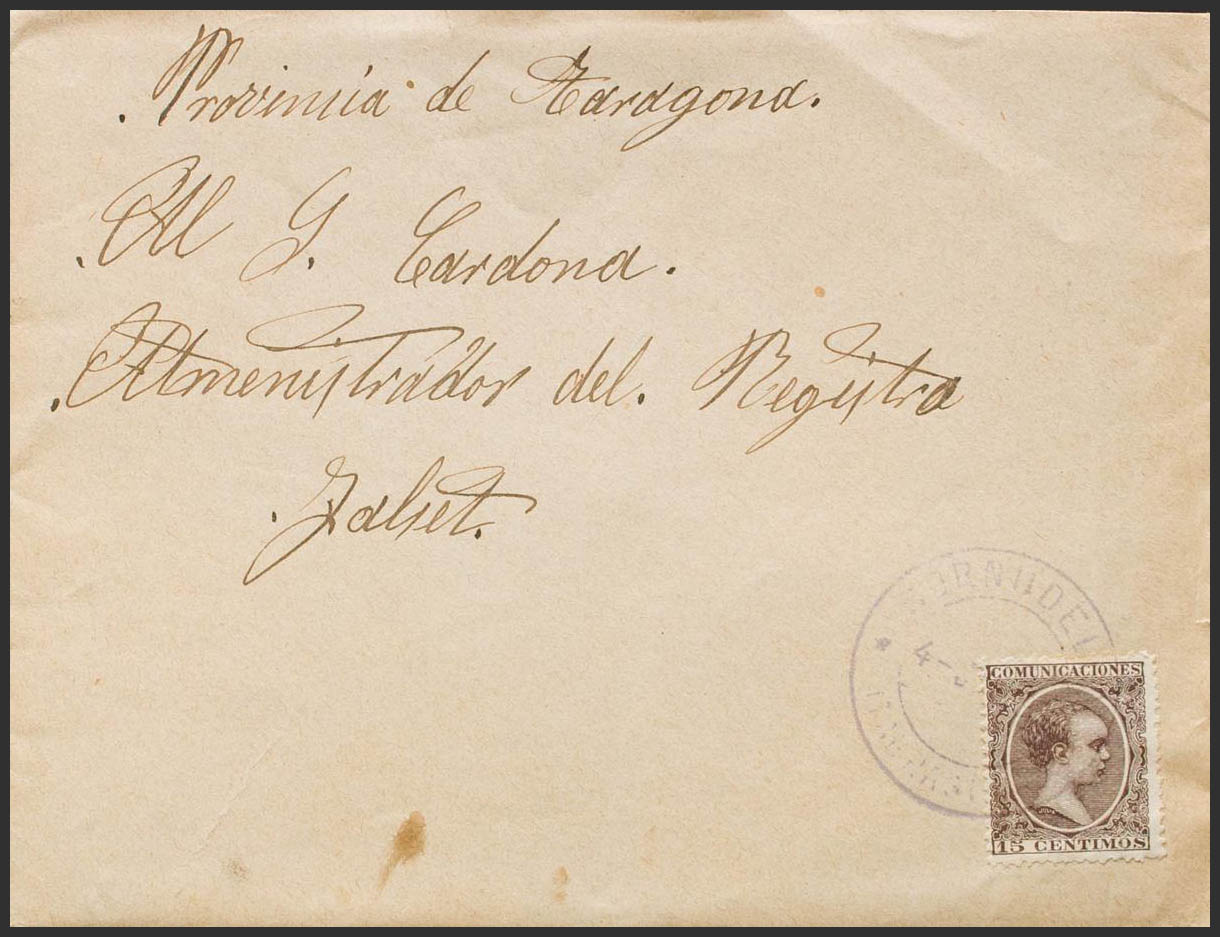 . Provincia de Taragona.
. Al G. Cardona.
. Atmenistrador del. Registra
. Falset.
CORNUDELL
4-
COMUNICACIONES
15 CENTIMOS